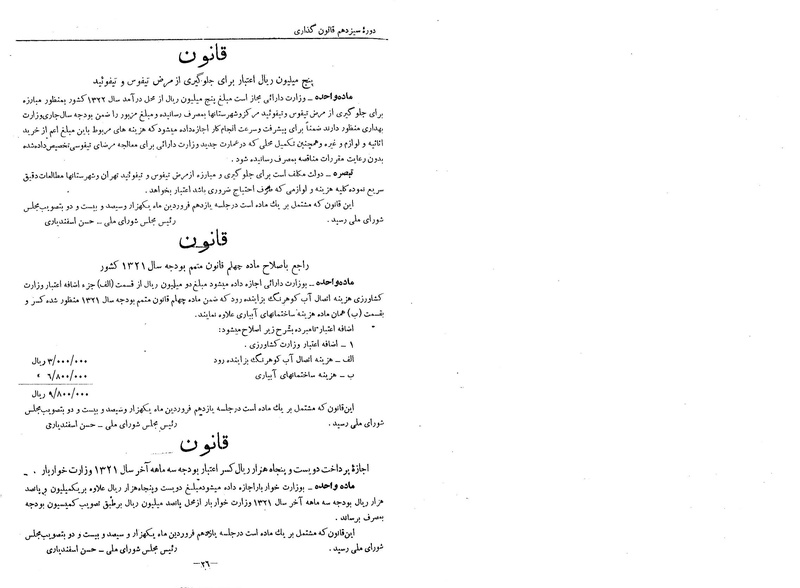 دورهٔ سیزدهم قانون گذاری
قانون
پنج میلیون ریال اعتبار برای جلوگیری از مرض تیفوس و تیفوئید
ماده واحده ـ وزارت دارائی مجاز است مبلغ پنج میلیون ریال از محل درآمد سال ۱۳۲۲ کشور بمنظور مبارزه
برای جلو گیری از مرض تیفوس وتیفوئید مرکزوشهرستانها بمصرف رسانیده ومبلغ مزبور را ضمن بودجه سال جاری وزارت
بهداری منظور دارند ضمناً برای پیشرفت وسرعت انجام کار اجازه داده میشود که هزینه های مربوط باین مبلغ اعم از خرید
اثاثیه و لوازم و غیره وهمچنین تکمیل محلی که درعمارت جدید وزارت دارائی برای معالجه مرضای تیفوسی تخصیص داده شده
بدون رعایت مقررات مناقصه بمصرف رسانیده شود .
تبصره ـ دولت مکلف است برای جلو گیری و مبارزه ازمرض تیفوس و تیفوئید تهران وشهرستانها مطالعات دقیق
سریع نموده کلیه هزینه و لوازمی که طرف احتیاج ضروری باشد اعتبار بخواهد .
این قانون که مشتمل بر یك ماده است درجلسه یازدهم فروردین ماه یکهزار وسیصد و بیست و دو بتصویب مجلس
شورای ملی رسید . رئیس مجلس شورای ملی ـ حسن اسفندیاری
قانون
راجع باصلاح ماده چهلم قانون متمم بودجه سال ۱۳۲۱ کشور
ماده واحده ـ بوزارت دارائی اجازه داده میشود مبلغ دو میلیون ریال از قسمت (الف) جزء اضافه اعتبار وزارت
کشاورزی هزینه اتصال آب کوهرنگ بزاینده رود که ضمن ماده چهلم قانون متمم بودجه سال ۱۳۲۱ منظور شده کسر و
بقسمت (ب) همان ماده هزینه ساختمانهای آبیاری علاوه نمایند.
اضافه اعتبار نامبرده بشرح زیر اصلاح میشود:
۱ ـ اضافه اعتبار وزارت کشاورزی .
الف ـ هزینه اتصال آب کوهرنگ بزاینده رود ۳/۰۰۰/۰۰۰ ریال
ب ـ هزینه ساختمانهای آبیاری ۶/۸۰۰/۰۰۰ »
۹/۸۰۰/۰۰۰ ریال
این قانون که مشتمل بر یك ماده است درجلسه یازدهم فروردین ماه یکهزار وسیصد و بیست و دو بتصویب مجلس
شورای ملی رسید . رئیس مجلس شورای ملی ـ حسن اسفندیاری
قانون
اجازهٔ پرداخت دویست و پنجاه هزار ریال کسر اعتبار بودجه سه ماهه آخر سال ۱۳۲۱ وزارت خواربار .
ماده واحده ـ بوزارت خواربار اجازه داده میشود مبلغ دویست وپنجاه هزار ریال علاوه بر یکمیلیون و پانصد
هزار ریال بودجه سه ماهه آخر سال ۱۳۲۱ وزارت خواربار ازمحل پانصد میلیون ریال برطبق تصویب کمیسیون بودجه
بمصرف برساند .
این قانون که مشتمل بر یك ماده است درجلسه یازدهم فروردین ماه یکهزار و سیصد و بیست و دو بتصویب مجلس
شورای ملی رسید . رئیس مجلس شورای ملی ـ حسن اسفندیاری
—۲۶—